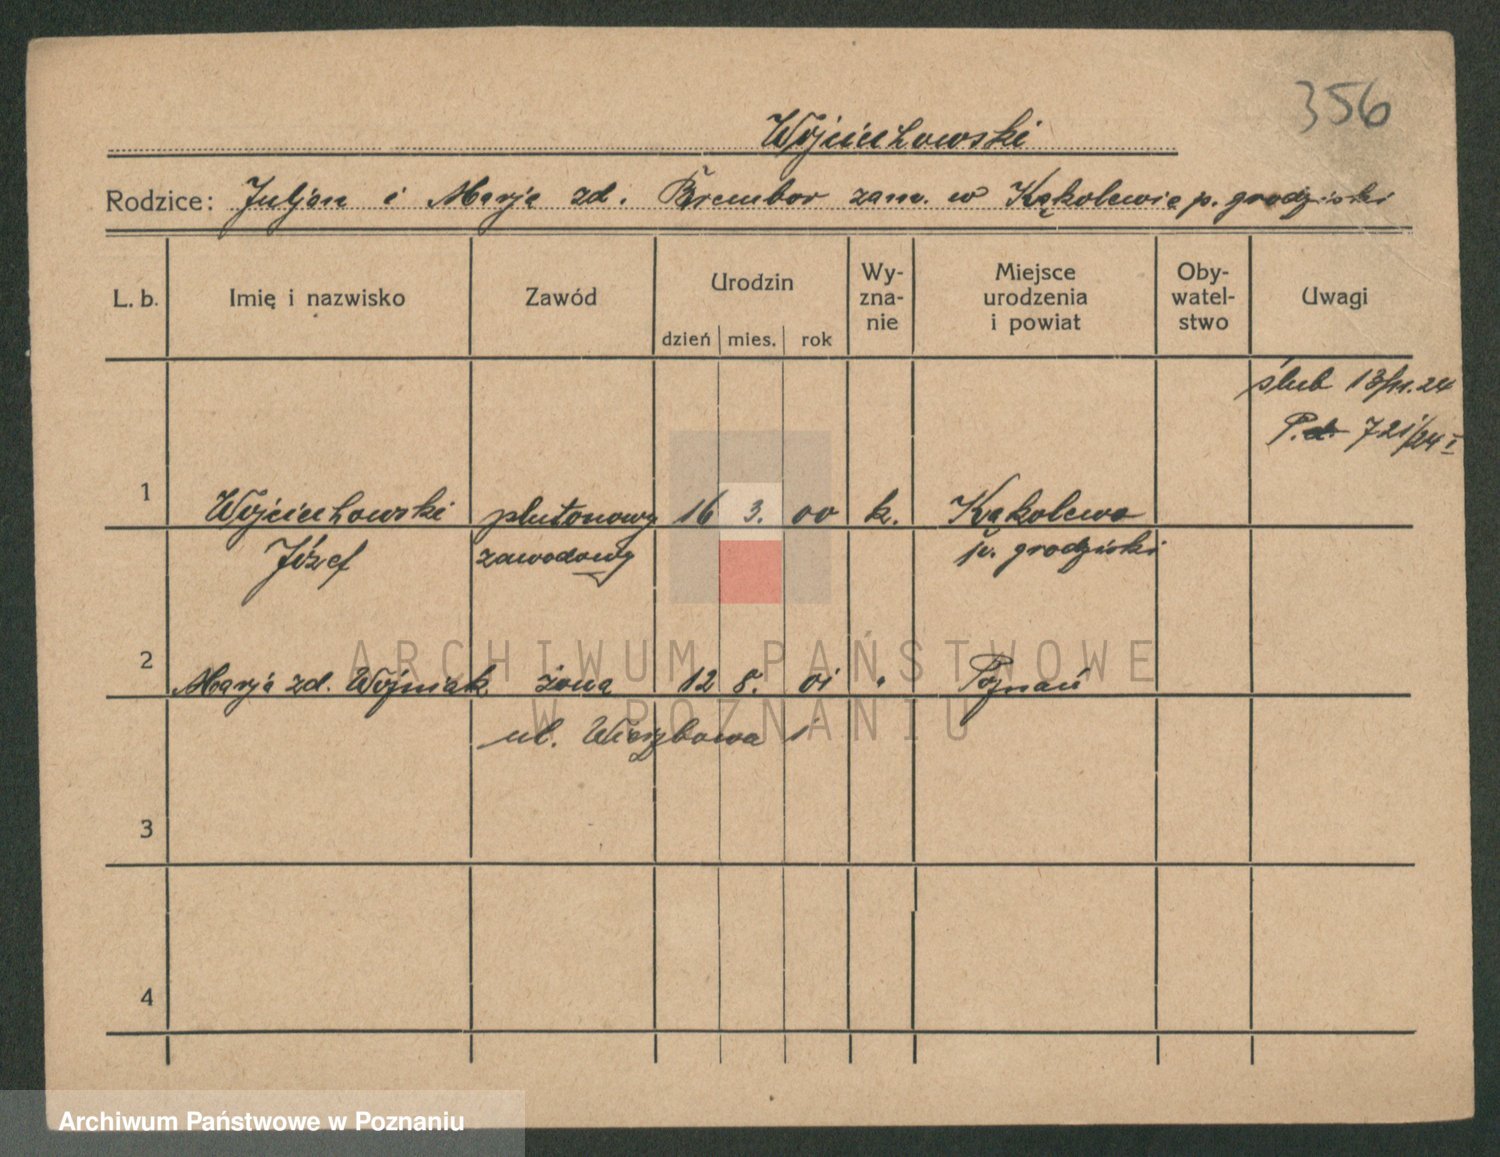 356
Wojciechowski
Rodzice: Juljan i Marja zd. Brembor zam. w Kąkolewie p. grodziski
L. b. Imię i nazwisko Zawód Urodzin Wy-zna-nie Miejsce urodzenia i powiat Oby-watel-stwo Uwagi
dzień mies. rok
ślub 13/11.24
P.d. 721/24 I
1 Wojciechowski plutonowy 16 3. 00 k. Kąkolewo
Józef zawodowy p. grodziski
2 Marja zd. Woźniak żona 12 8. 01 " Poznań
ul. Wierzbowa 1
3
4
ARCHIWUM PAŃSTWOWE
W POZNANIU
Archiwum Państwowe w Poznaniu